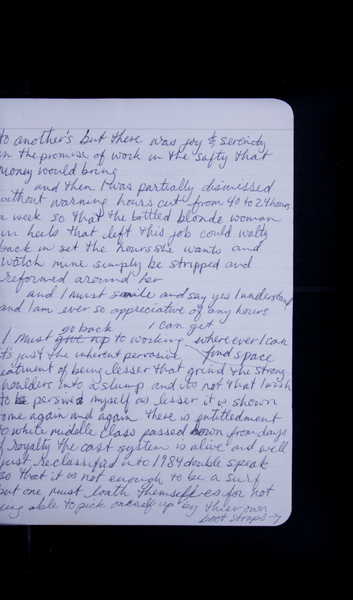 to another's but there was joy & serenity
in the promise of work in the safty that
money would bring
and then I was partially dismissed
without warning hours cut from 40 to 24 hours
a week so that the bottled blonde woman
in heels that left this job could waltz
back in set the hours she wants and
watch mine simply be stripped and
reformed around her
and I must smile and say yes I understand
and I am ever so appreciative of any hours
go back I can get
I must give up to working where ever I can
it's just the inherent pervasive find space
eatment of being lesser that grind the strong
houlders into a slump and its not that I wish
to be persive myself as lesser it is shown
ome again and again there is entitlement
to white middle class passed down from days
f royalty the cast system is alive and well
just reclassified into 1984 double speak
so that it is not enough to be a surf
but one must loath themselves for not
eing able to pick oneself up by thier own
boot straps →